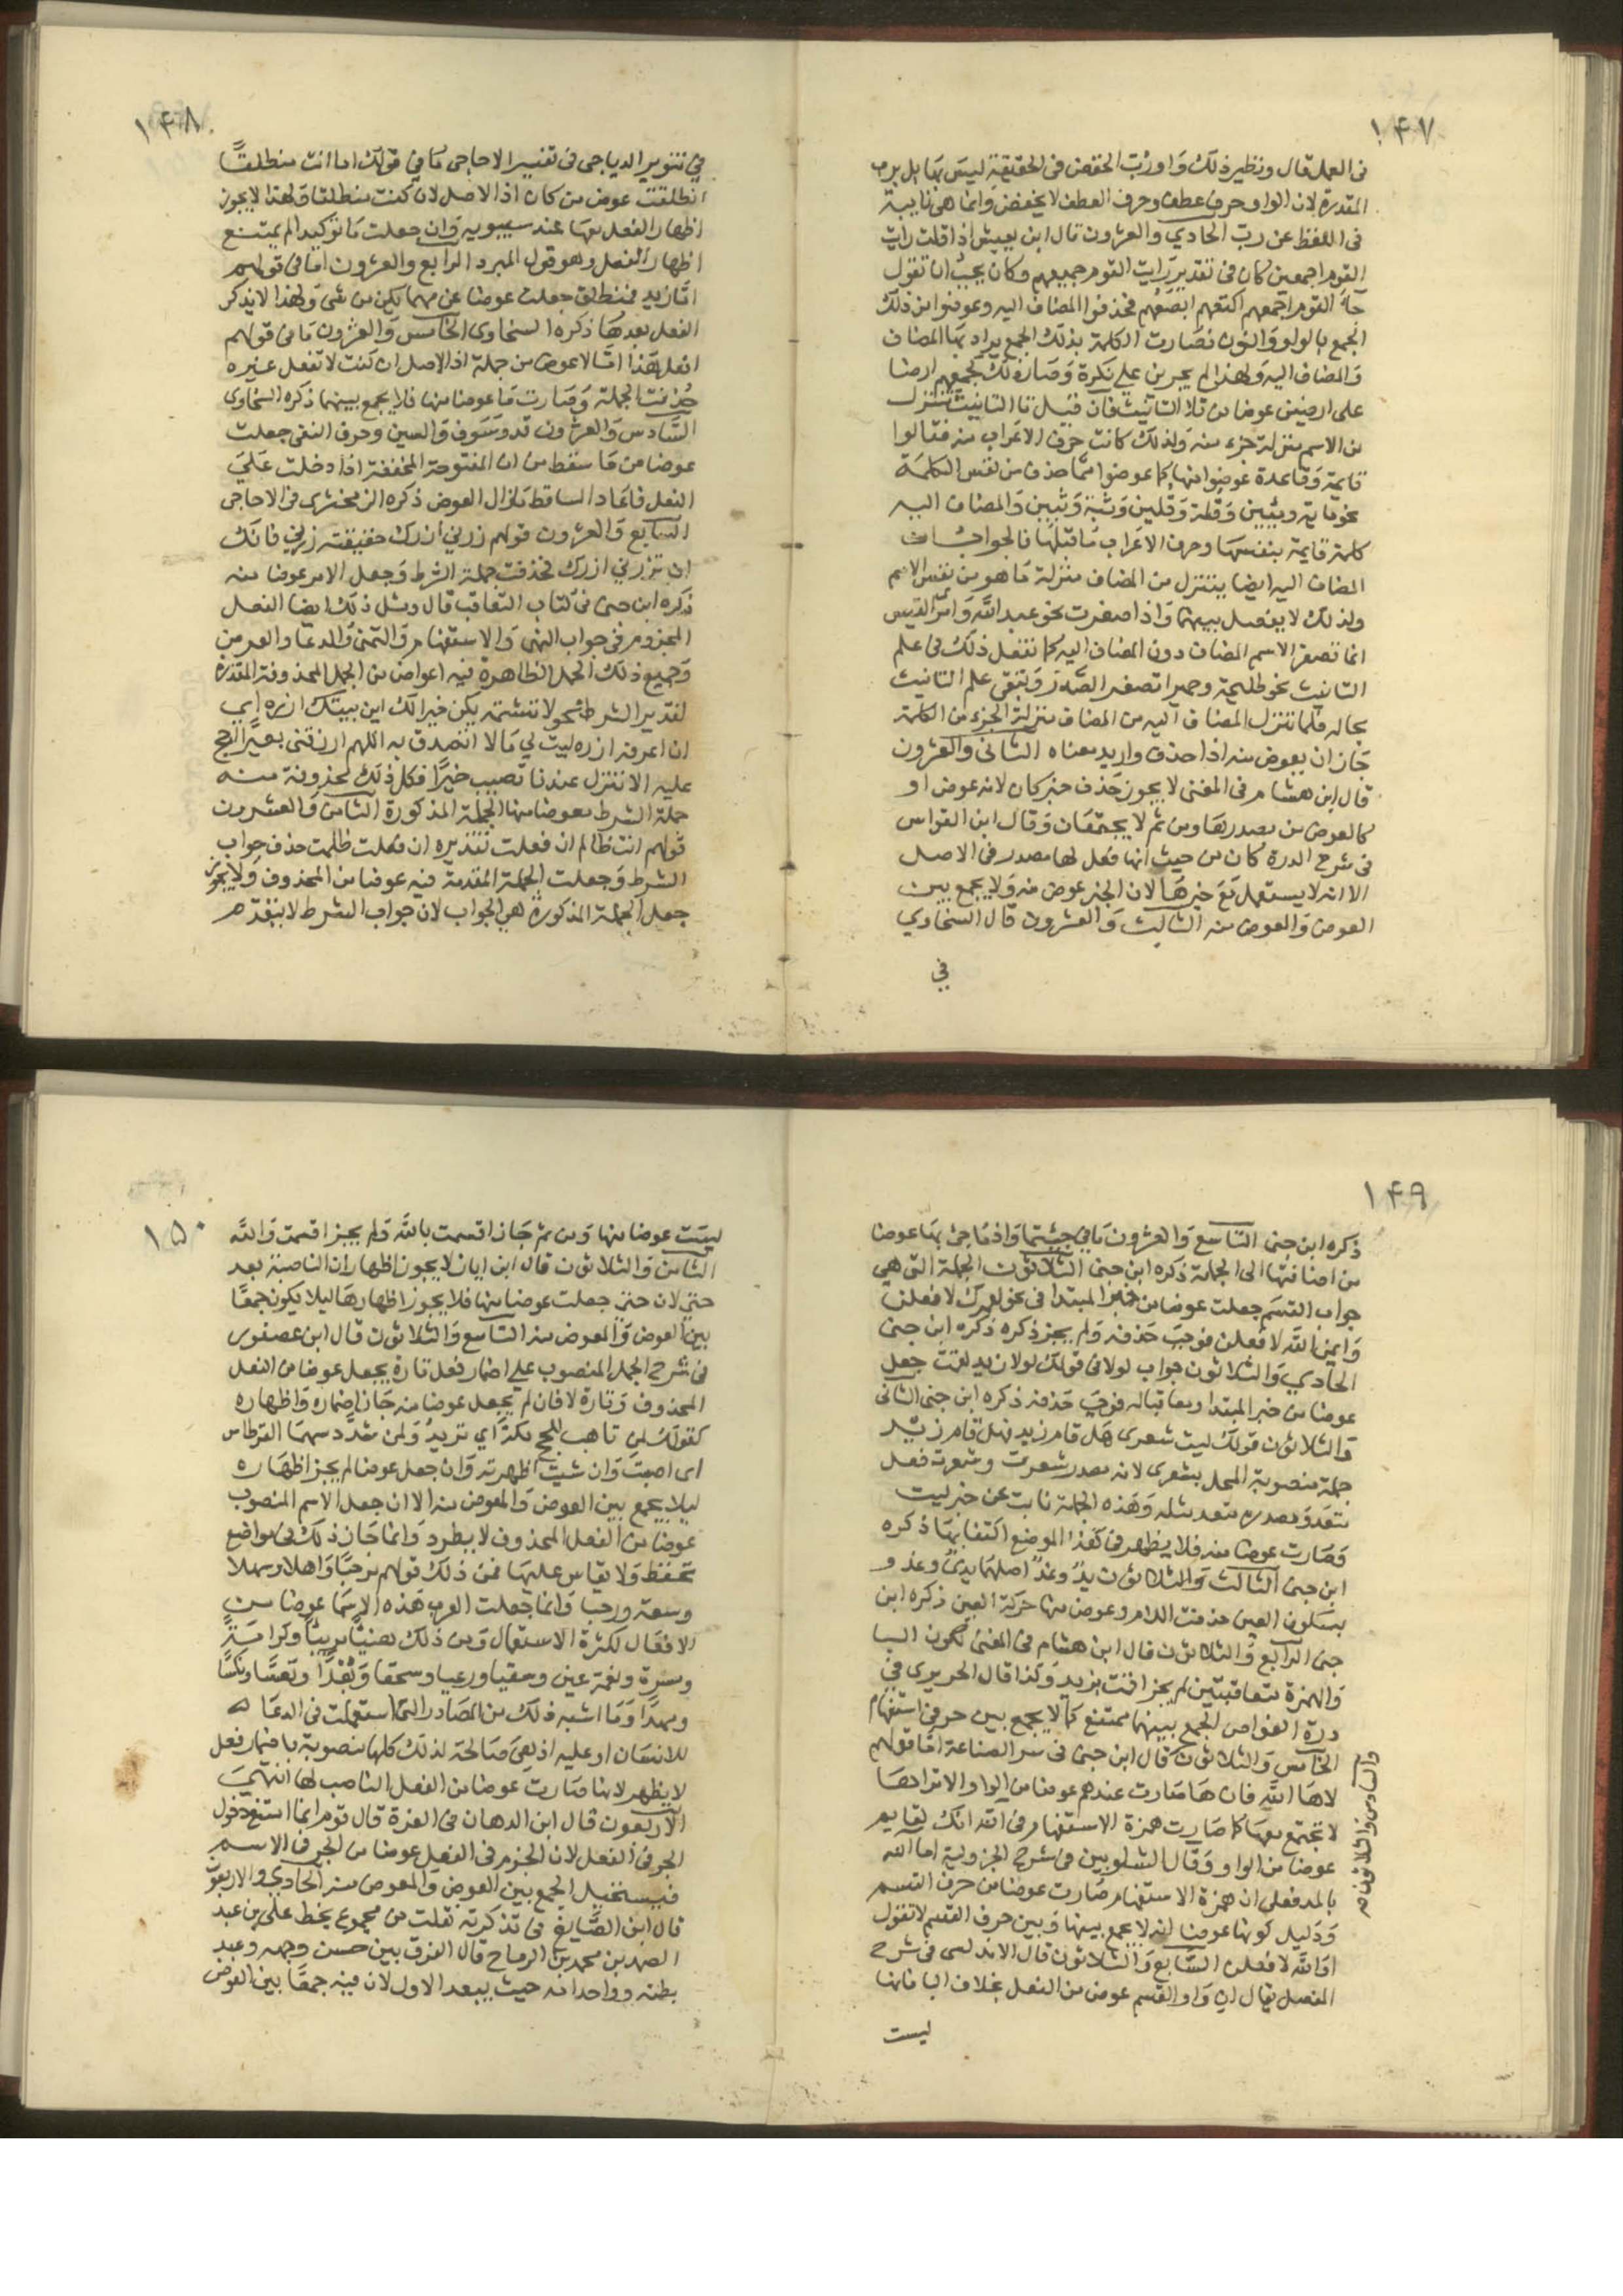 ١٤٧
في العمل قال ونظير ذلك واو رُبّ الخفض في الحقيقة ليس بها بل برب
المقدرة لان الواو حرف عطف وحرف العطف لا يخفض وانما هي نايبة
في اللفظ عن رب الحادي والعشرون قال ابن يعيش اذا قلت رايت
القوم اجمعين كان في تقدير رايت القوم جميعهم وكان يجب ان تقول
جاء القوم اجمعهم اكتعهم ابصعهم فحذفوا المضاف اليه وعوضوا من ذلك
الجمع بالواو والنون فصارت الكلمة بذلك الجمع يراد بها المضاف
والمضاف اليه ولهذا لم يجرين على نكرة وصار ذلك كجمعهم ارضا
على ارضين عوضا من تاء التانيث فان قيل تا التانيث تتنزل
من الاسم منزلة جزء منه ولذلك كانت حرف الاعراب منه فقالوا
قايمة وقاعدة عوضوا منها كما عوضوا مما حذف من نفس الكلمة
نحو ماية وميين وقلة وقلين وثبة وثبين والمضاف اليه
كلمة قايمة بنفسها وحرف الاعراب ما قبلها فالجواب ان
المضاف اليه ايضا يتنزل من المضاف منزلة ما هو من نفس الاسم
ولذلك لا يفصل بينهما واذا صغرت نحو عبد الله وامرء القيس
انما تصغر الاسم المضاف دون المضاف اليه كما تفعل ذلك في علم
التانيث نحو طليحة وحميرا تصغر الصدر وتبقى علم التانيث
بحاله فلما تنزل المضاف اليه من المضاف منزلة الجزء من الكلمة
جاز ان يعوض منه اذا حذف واريد معناه الثاني والعشرون
قال ابن هشام في المغني لا يجوز حذف خبر كان لانه عوض او
كالعوض من مصدرها ومن ثم لا يجتمعان وقال ابن القواس
في شرح الدرة كان من حيث انها فعل لها مصدر في الاصل
الا انه لا يستعمل مع خبرها لان الخبر عوض منه ولا يجمع بين
العوض والعوض منه الثالث والعشرون قال السخاوي
في
١٤٨
في تنوير الدياجي في تفسير الاحاجي ما في قولك اما انت منطلقًا
انطلقت عوض من كان اذ الاصل لان كنت منطلقا ولهذا لا يجوز
اظهار الفعل معها عند سيبويه وان جعلت ما توكيدا لم يمتنع
اظهار الفعل وهو قول المبرد الرابع والعشرون اما في قولهم
اما زيد فمنطلق جعلت عوضا عن مهما يكن من شئ ولهذا لا يذكر
الفعل بعدها ذكره السخاوي الخامس والعشرون ما في قولهم
افعل هذا امّا لا عوض من جملة اذ الاصل ان كنت لا تفعل غيره
حُذفت الجملة وصارت ما عوضا منها فلا يجمع بينهما ذكره السخاوي
السادس والعشرون قد وسوف والسين وحرف النفي جعلت
عوضا من ما سقط من ان المفتوحة المخففة اذا دخلت على
الفعل فاعاد الساقط زال العوض ذكره الزمخشري في الاحاجي
السابع والعشرون قولهم زرني ازرك حقيقته زرني فانك
ان تزرني ازرك فحذفت جملة الشرط وجعل الامر عوضا منه
ذكره ابن جني في كتاب التعاقب قال ومثل ذلك ايضا الفعل
المجزوم في جواب النهي والاستفهام والتمني والدعا والعرض
وجميع ذلك الجمل الظاهرة فيه اعواض من الجمل المحذوفة المقدرة
لتقدير الشرط نحو لا تشتمه يكن خيرا لك اين بيتك ازره اي
ان اعرفه ازره ليت لي مالا اتصدق به اللهم ارزقني بعيرا احج
عليه الا تنزل عندنا تصيب خيرًا فكل ذلك محذوفة منه
جملة الشرط معوضا منها الجملة المذكورة الثامن والعشرون
قولهم انت ظالم ان فعلت تقديره ان فعلت ظلمت حذف جواب
الشرط وجعلت الجملة المقدمة فيه عوضا من المحذوف ولا يجوز
جعل الجملة المذكورة هي الجواب لان جواب الشرط لا يتقدم
١٤٩
ذكره ابن جني التاسع والعشرون ما في حيثما واذما جئ بها عوضا
من اضافتها الى الجملة ذكره ابن جني الثلاثون الجملة التي هي
جواب القسم جعلت عوضا من خبر المبتدا في نحو لعمرك لافعلن
وايمن الله لافعلن فوجب حذفه ولم يجز ذكره ذكره ابن جني
الحادي والثلاثون جواب لولا في قولك لولا زيد لقمت جعل
عوضا من خبر المبتدا ومعاقبا له فوجب حذفه ذكره ابن جني الثاني
والثلاثون قولك ليت شعري هل قام زيد فهل قام زيد
جملة منصوبة المحل بشعري لانه مصدر شعرت وشعرت فعل
متعد ومصدره متعد مثله وهذه الجملة نابت عن خبر ليت
وصارت عوضا منه فلا يظهر في هذا الموضع اكتفا بها ذكره
ابن جني الثالث والثلاثون يدٌ وغدٌ اصلهما يديٌ وغدو
بسكون العين حذفت اللام وعوض منها حركة العين ذكره ابن
جني الرابع والثلاثون قال ابن هشام في المغني لكون البا
والهمزة متعاقبتين لم يجز اقمت بزيد وكذا قال الحريري في
درة الغواص الجمع بينهما ممتنع كما لا يجمع بين حرفي استفهام
الخامس والثلاثون قال ابن جني في سر الصناعة اما قولهم
لاها الله فان ها صارت عندهم عوضا من الواو الا تراها
لا تجتمع معها كما صارت همزة الاستفهام في الله انك لقايم
عوضا من الواو وقال الشلوبين في شرح الجزولية اما الله
بالمد فعلى ان همزة الاستفهام صارت عوضا من حرف القسم
ودليل كونها عوضا انه لا يجمع بينها وبين حرف القسم لا تقول
اوالله لافعلن السابع والثلاثون قال الاندلسي في شرح
المفصل يقال ان واو القسم عوض من الفعل بخلاف البا فانها
والسادس والثلاثون صح
ليست
١٥٠
ليست عوضا منها ومن ثم جاز اقسمت بالله ولم يجز اقسمت والله
الثامن والثلاثون قال ابن اياز لا يجوز اظهار ان الناصبة بعد
حتى لان حتى جعلت عوضا منها فلا يجوز اظهارها ليلا يكون جمعًا
بين العوض والمعوض منه التاسع والثلاثون قال ابن عصفور
في شرح الجمل المنصوب على اضمار فعل تارة يجعل عوضا من الفعل
المحذوف وتارة لا فان لم يجعل عوضا منه جاز اضماره واظهاره
كقولك لمن تاهب للحج مكةَ اي تريد ولمن سدد سهما القرطاس
اي اصبت وان شيت اظهرته وان جعل عوضا لم يجز اظهاره
ليلا يجمع بين العوض والمعوض منه الا ان جعل الاسم المنصوب
عوضا من الفعل المحذوف لا يطرد وانما جاز ذلك في مواضع
تحفظ ولا يقاس عليها فمن ذلك قولهم مرحبًا واهلا وسهلا
وسعة ورحبا وانما جعلت العرب هذه الاسما عوضا من
الافعال لكثرة الاستعمال ومن ذلك هنيئًا مريئًا وكرامةً
ومسرة ونعمة عين وسقيا ورعيا وسحقا وبُعْدًا وتعسًا ونكسًا
وبهرًا وما اشبه ذلك من المصادر التي استعملت في الدعا له
للانسان او عليه اذ هي صالحة لذلك كلها منصوبة باضمار فعل
لا يظهر لانها صارت عوضا من الفعل الناصب لها انتهى
الاربعون قال ابن الدهان في الغرة قال قوم انما امتنع دخول
الجر في الفعل لان الجزم في الفعل عوضا من الجر في الاسم
فيستحيل الجمع بين العوض والمعوض منه الحادي والاربعون
قال ابن الصايغ في تذكرته نقلت من مجموع بخط علي بن عبد
الصمد بن محمد بن الرماح قال الفرق بين حسن وجهه وعبد
بطنه وواحد امه حيث يبعد الاول لان فيه جمعًا بين العوض